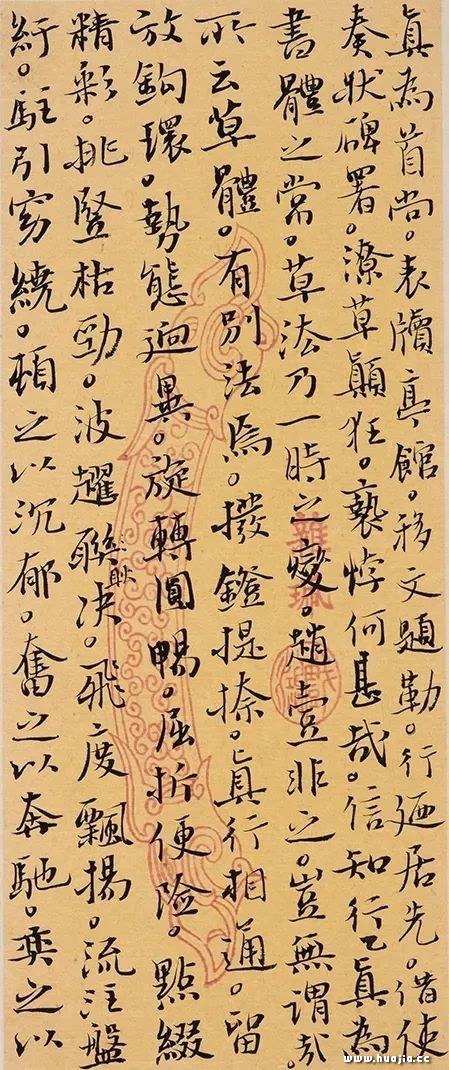 眞為首尚。表牘亭館。移文題勒。行廼居先。借使
奏狀碑署。潦草顛狂。褻悖何甚哉。信知行眞為
書體之常。草法乃一時之變。趙壹非之。豈無謂哉。
所云草體。有別法焉。撥鐙提捺。眞行相通。留
放鈎環。勢態迥異。旋轉圓暢。屈折便险。點綴
精彩。挑豎枯勁。波趯聯耿决。飛度飄揚。流注盤
紆。駐引窈繞。頓之以沉郁。奮之以奔馳。奕之以
www.huajia.cc